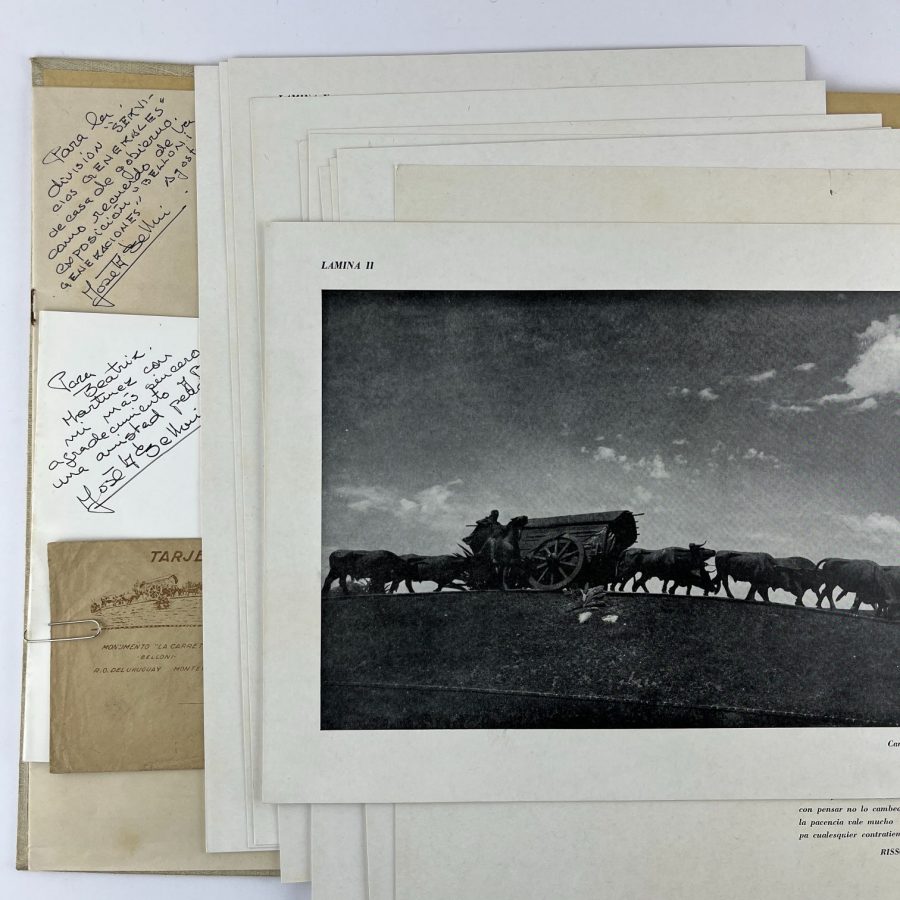 Para la
división "SERVI-
CIOS GENERALES"
de casa de gobierno.
como recuerdo de la
exposición "BELLONI
GENERACIONES"
José
Para
Beatriz
Martinez con
mi más sincero
agradecimiento
una amistad
José
TARJE
MONUMENTO "LA CARRET
BELLONI
R.O. DEL URUGUAY MONTE
LAMINA II
Car
con pensar no lo cambea
la pacencia vale mucho
pa cualesquier contratiem
RISS